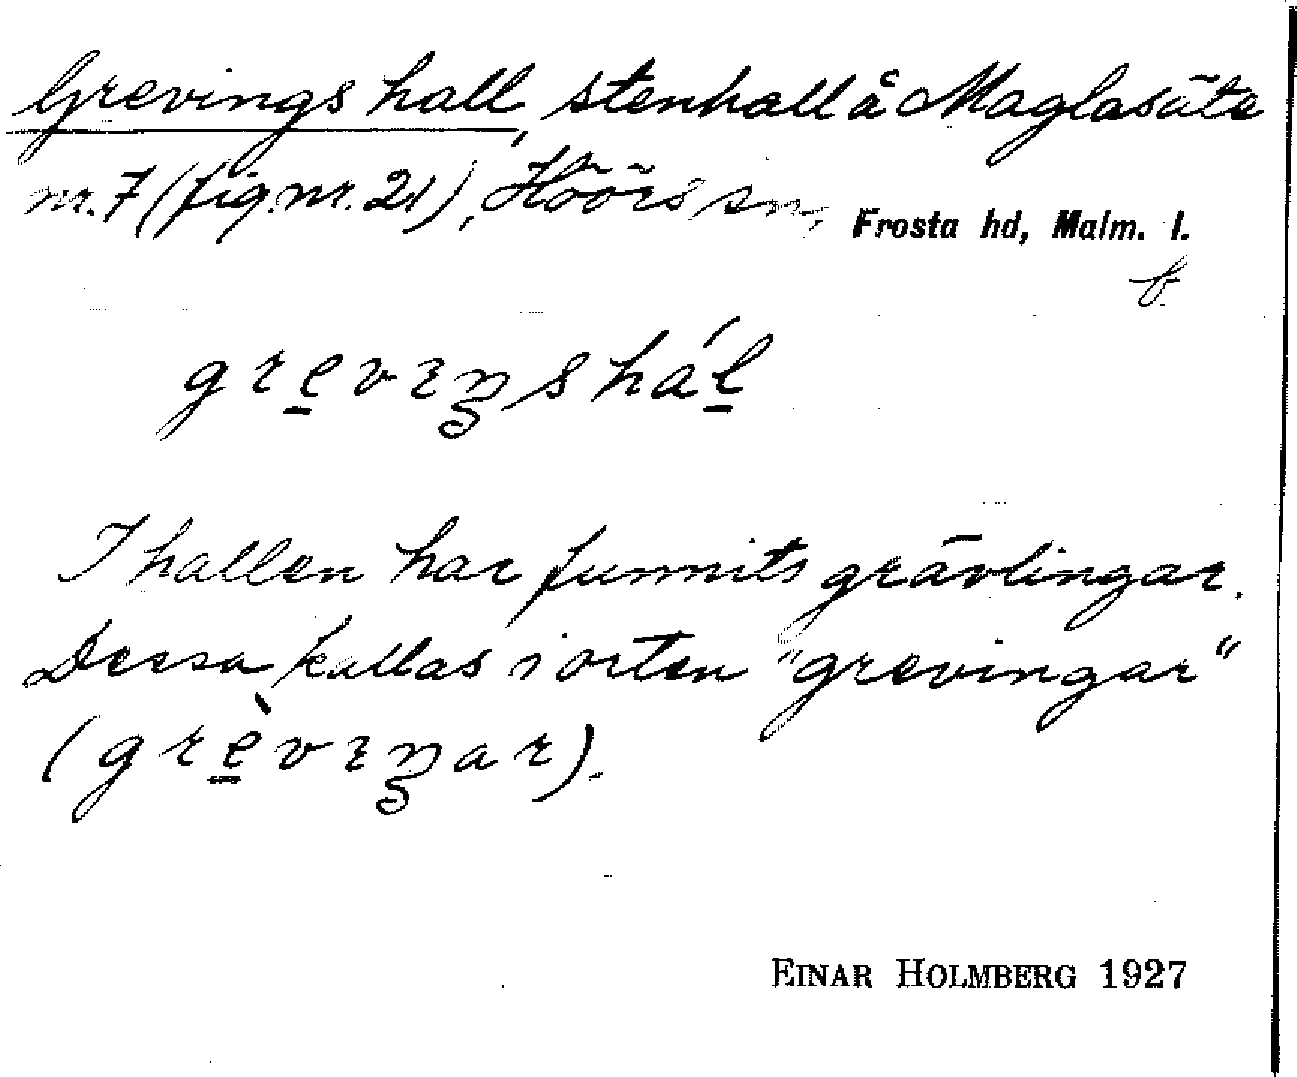 Grevings hall, stenhall å Maglasäte
nr. 7 (fig. nr. 21), Höörs sn, Frosta hd, Malm. l.
b.
gre̲vɪŋshál̲
I hallen har funnits grävlingar.
Dessa kallas i orten "grevingar"
(grè̲vɪŋar).
EINAR HOLMBERG 1927